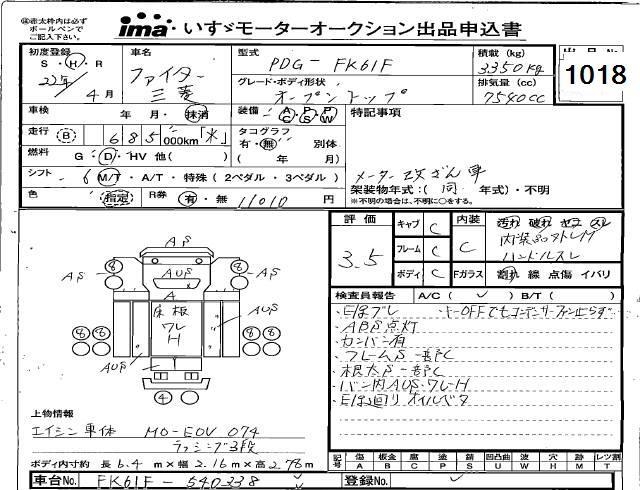 ㊟赤太枠内は必ず
ボールペンで
ご記入下さい。
ima いすゞモーターオークション出品申込書
初度登録 車名 型式 積載 (kg) 出品No.
S・H・R ファイター PDG-FK61F 3350kg 1018
22年 4月 三菱 グレード・ボディ形状 排気量 (cc)
オープントップ 7540cc
車検 年・月・抹消 装備 AC PS PW 特記事項
走行 B 685 000km「水」 タコグラフ
有・無 別体
燃料 G・D・HV 他( ) ( 年 月)
シフト 6 M/T・A/T・特殊(2ペダル・3ペダル) メーター改ざん車
架装物年式:(同 年式)・不明
色 指定 R券 有・無 11010円 ※不明の場合は、不明に○をする。
評価 キャブ C 内装 汚れ 破れ ヤコ スレ
3.5 フレーム C C 内装品欠トレイ
ハンドルスレ
ボディ C Fガラス 割れ 線 点傷 イバリ
検査員報告 A/C( ✓ ) B/T( )
・Eはブレ ・キーOFFでもコンデンサーファン止らず
・ABS点灯
・カンバン有
・フレームS一部C
・根太S一部C
・バン内AUS・ワレH
・E廻りオイルベタ
AS
⑧ AUS ⑧
AS A AS
床板 ワレ H
AUS
⑧ ⑧
AUS
④
上物情報
エイシン車体 MO-EOV 074
ラッシング3段
ボディ内寸約 長6.4m×幅2.16m×高2.78m
記号 傷 板金 腐 塗 錆 凹凸曲 波 穴 跡 レツ割
A B C P S U W H M T
車台No. FK61F-540338 登録No.